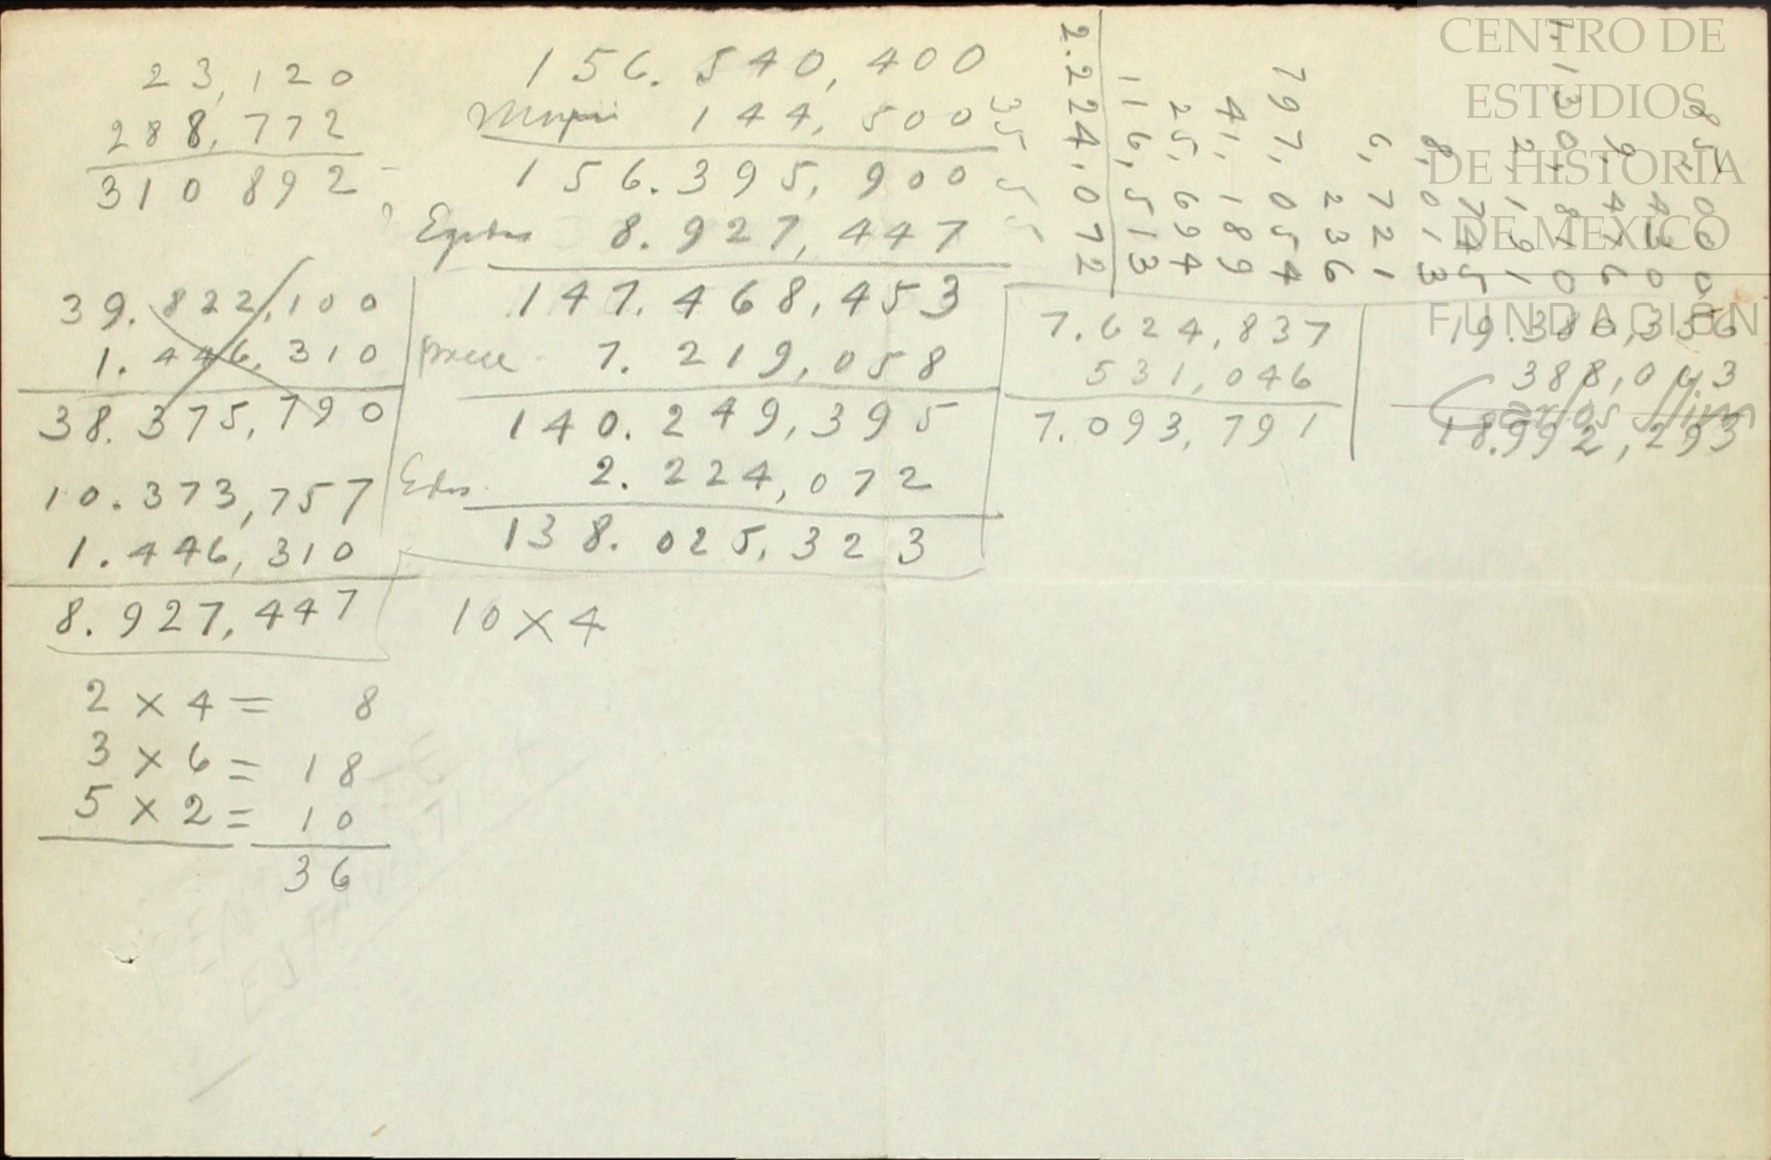 23,120
288,772
310 892
39.822,100
1.446,310
38.375,790
10.373,757
1.446,310
8.927,447
2 × 4 = 8
3 × 6 = 18
5 × 2 = 10
36
156.540,400
144,500
156.395,900
8.927,447
147.468,453
7.219,058
140.249,395
Edos. 2.224,072
138.025,323
10 × 4
85,000
430
9,476
1.130,810
2,191
745
8,013
6,721
236
797,054
41,189
25,694
116,513
2.224,072
7.624,837
531,046
7.093,791
19.380,356
388,063
18.992,293
CENTRO DE
ESTUDIOS
DE HISTORIA
DE MEXICO
FUNDACIÓN
Carlos Slim